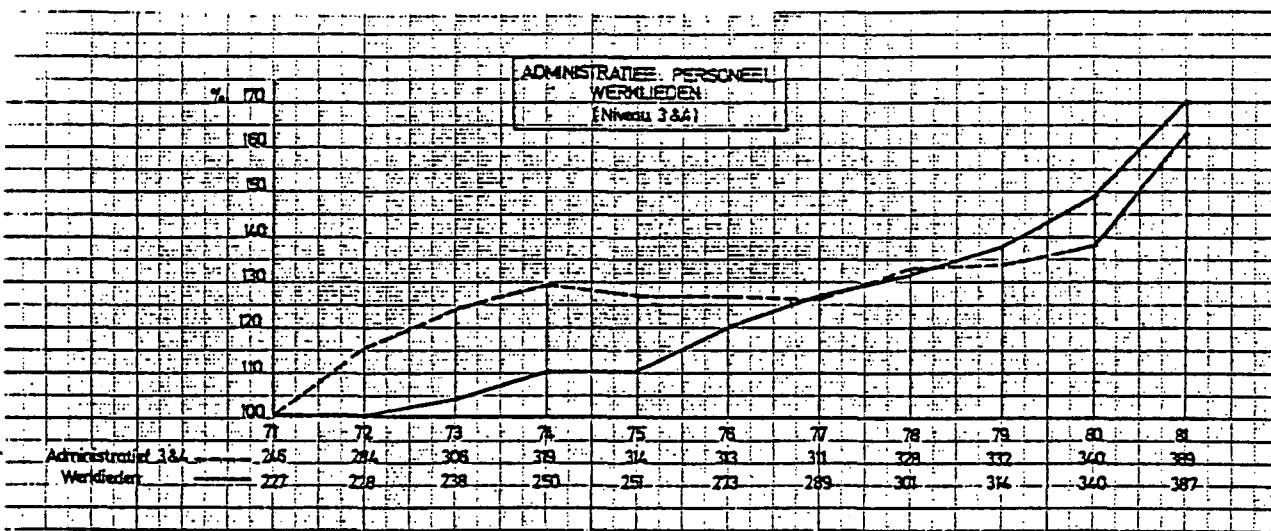 ADMINISTRATIEF PERSONEEL
WERKLIEDEN
(Niveau 3&4)
% 170
160
150
140
130
120
110
100
71 72 73 74 75 76 77 78 79 80 81
Administratief 3&4 284 319 314 313 311 328 332 340
Werklieden 227 228 238 250 251 273 289 301 314 340 387